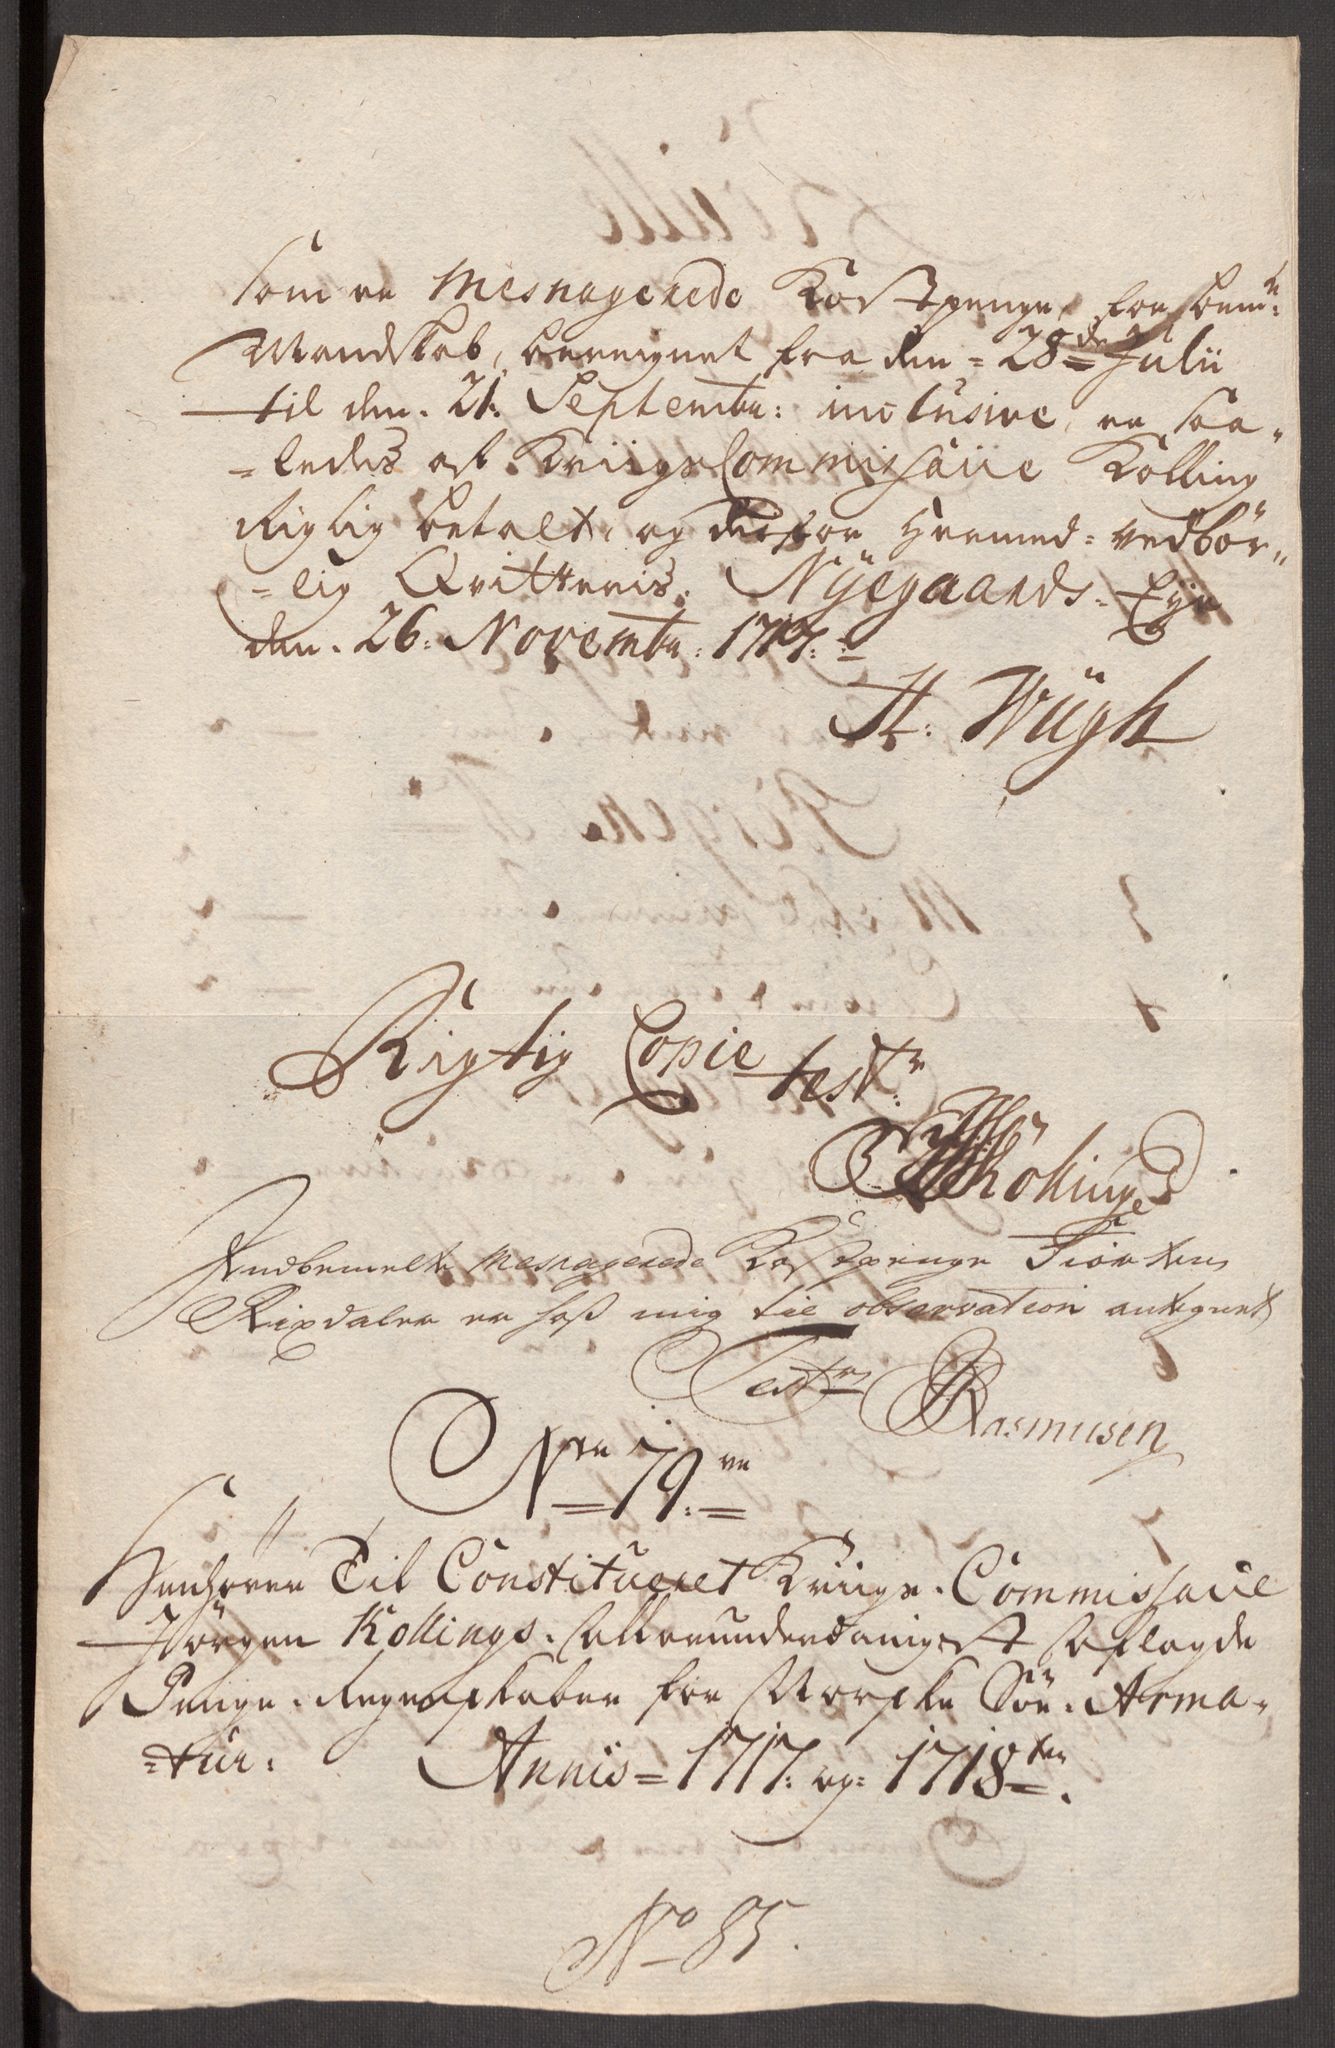 Som er Mesnagerede Kostpenge, for bem:te
Mandskab, beregnet fra den = 28de Julii
til den. 21: Septembr: inclusive, er saa-
=ledes af KriigsCommissarie Kolling
Rigtig betalt, og derfor Hermed = vedbör-
=lig Qvitteris. Nÿegaards = Eÿe
den. 26: Novembr. 1717.
H. Wügh
Rigtig Copie test:r
Kolling
Indbemelte Mesnagerede Kostpenge Fiorten
Rixdaler er hoß mig til observation antegnet
Test:r Rasmusen
Nr: 79:
Henhörer Til Constitueret Kriigs. Commissarie
Jörgen Kollings. allerunderdanigst aflagde
Penge. Regenskaber for Norske Söe. Arma-
=tur. Annis = 1717: og = 1718:ten.
No 85.